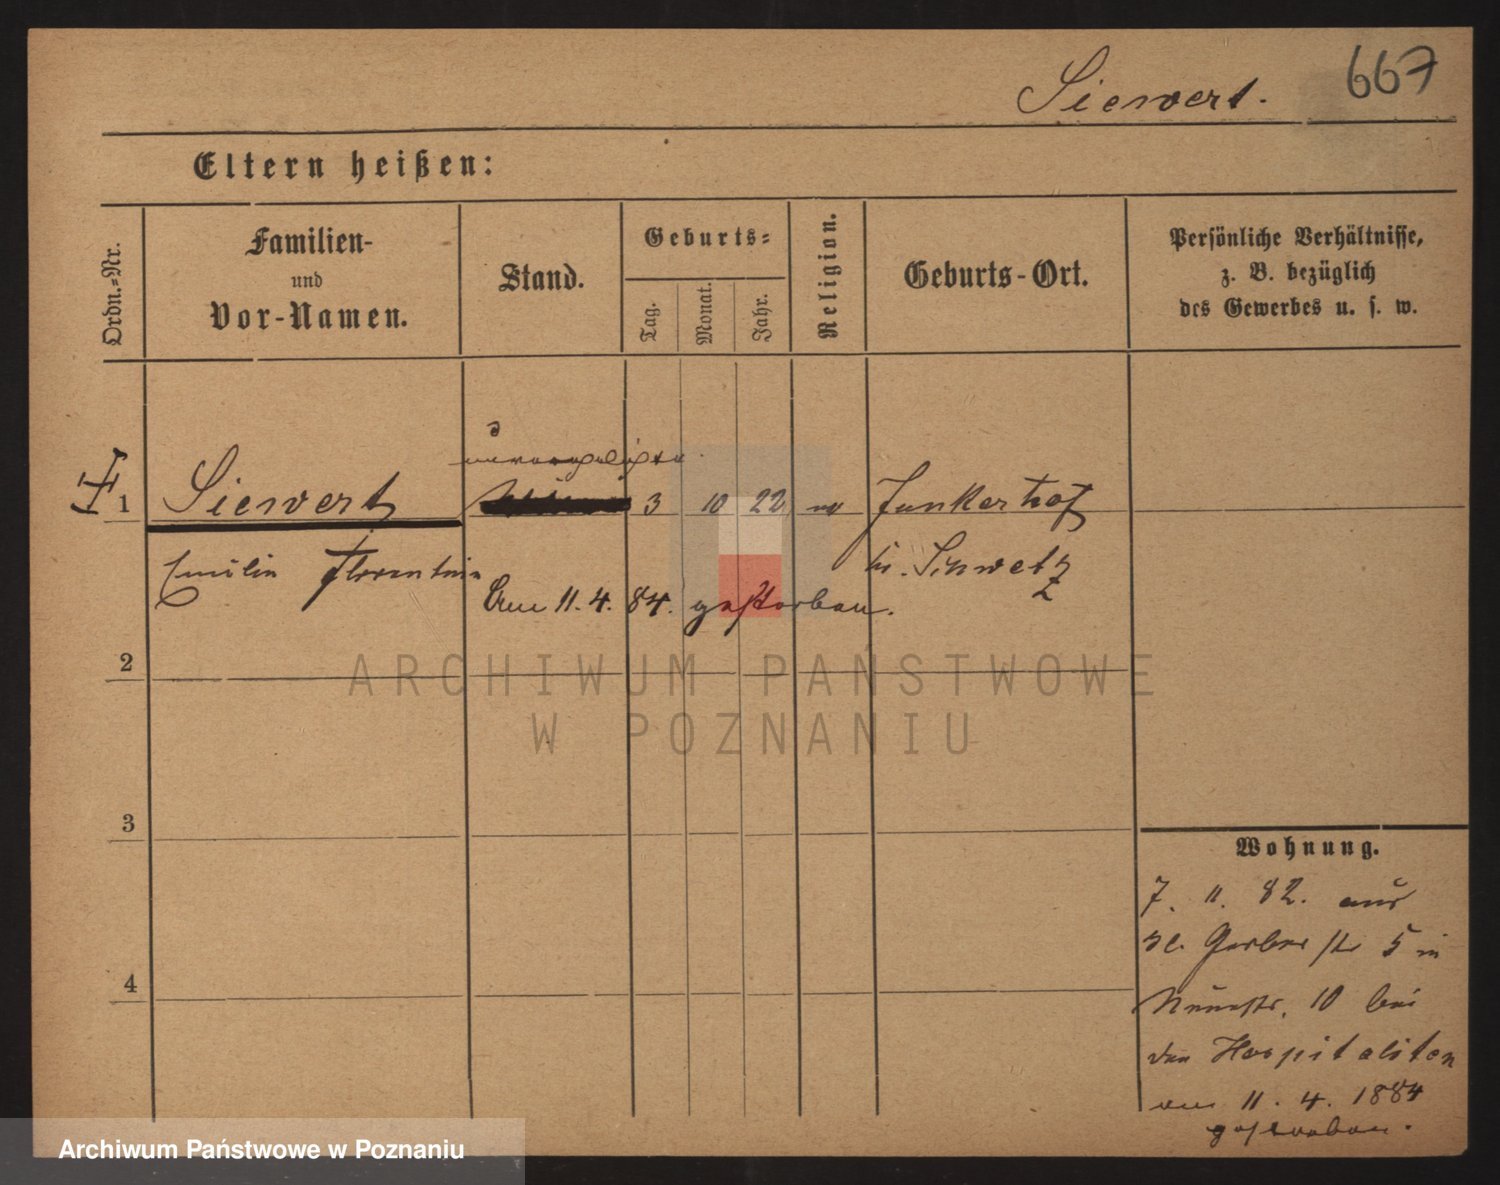 Siewert.
667
Eltern heißen:
Ordn.-Nr.
Familien-
und
Vor-Namen.
Stand.
Geburts-
Tag.
Monat.
Jahr.
Religion.
Geburts-Ort.
Persönliche Verhältnisse,
z. B. bezüglich
des Gewerbes u. s. w.
1
Siewert
3 10 22
Junkerhof
Emilie Florentine
bei Schwetz
Am 11. 4. 84. gestorben.
2
3
4
Wohnung.
7. 11. 82. aus
Kl. Gerberstr 5 in
10 bei
den Hospitaliten
am 11. 4. 1884
gestorben.
ARCHIWUM PAŃSTWOWE
W POZNANIU
Archiwum Państwowe w Poznaniu